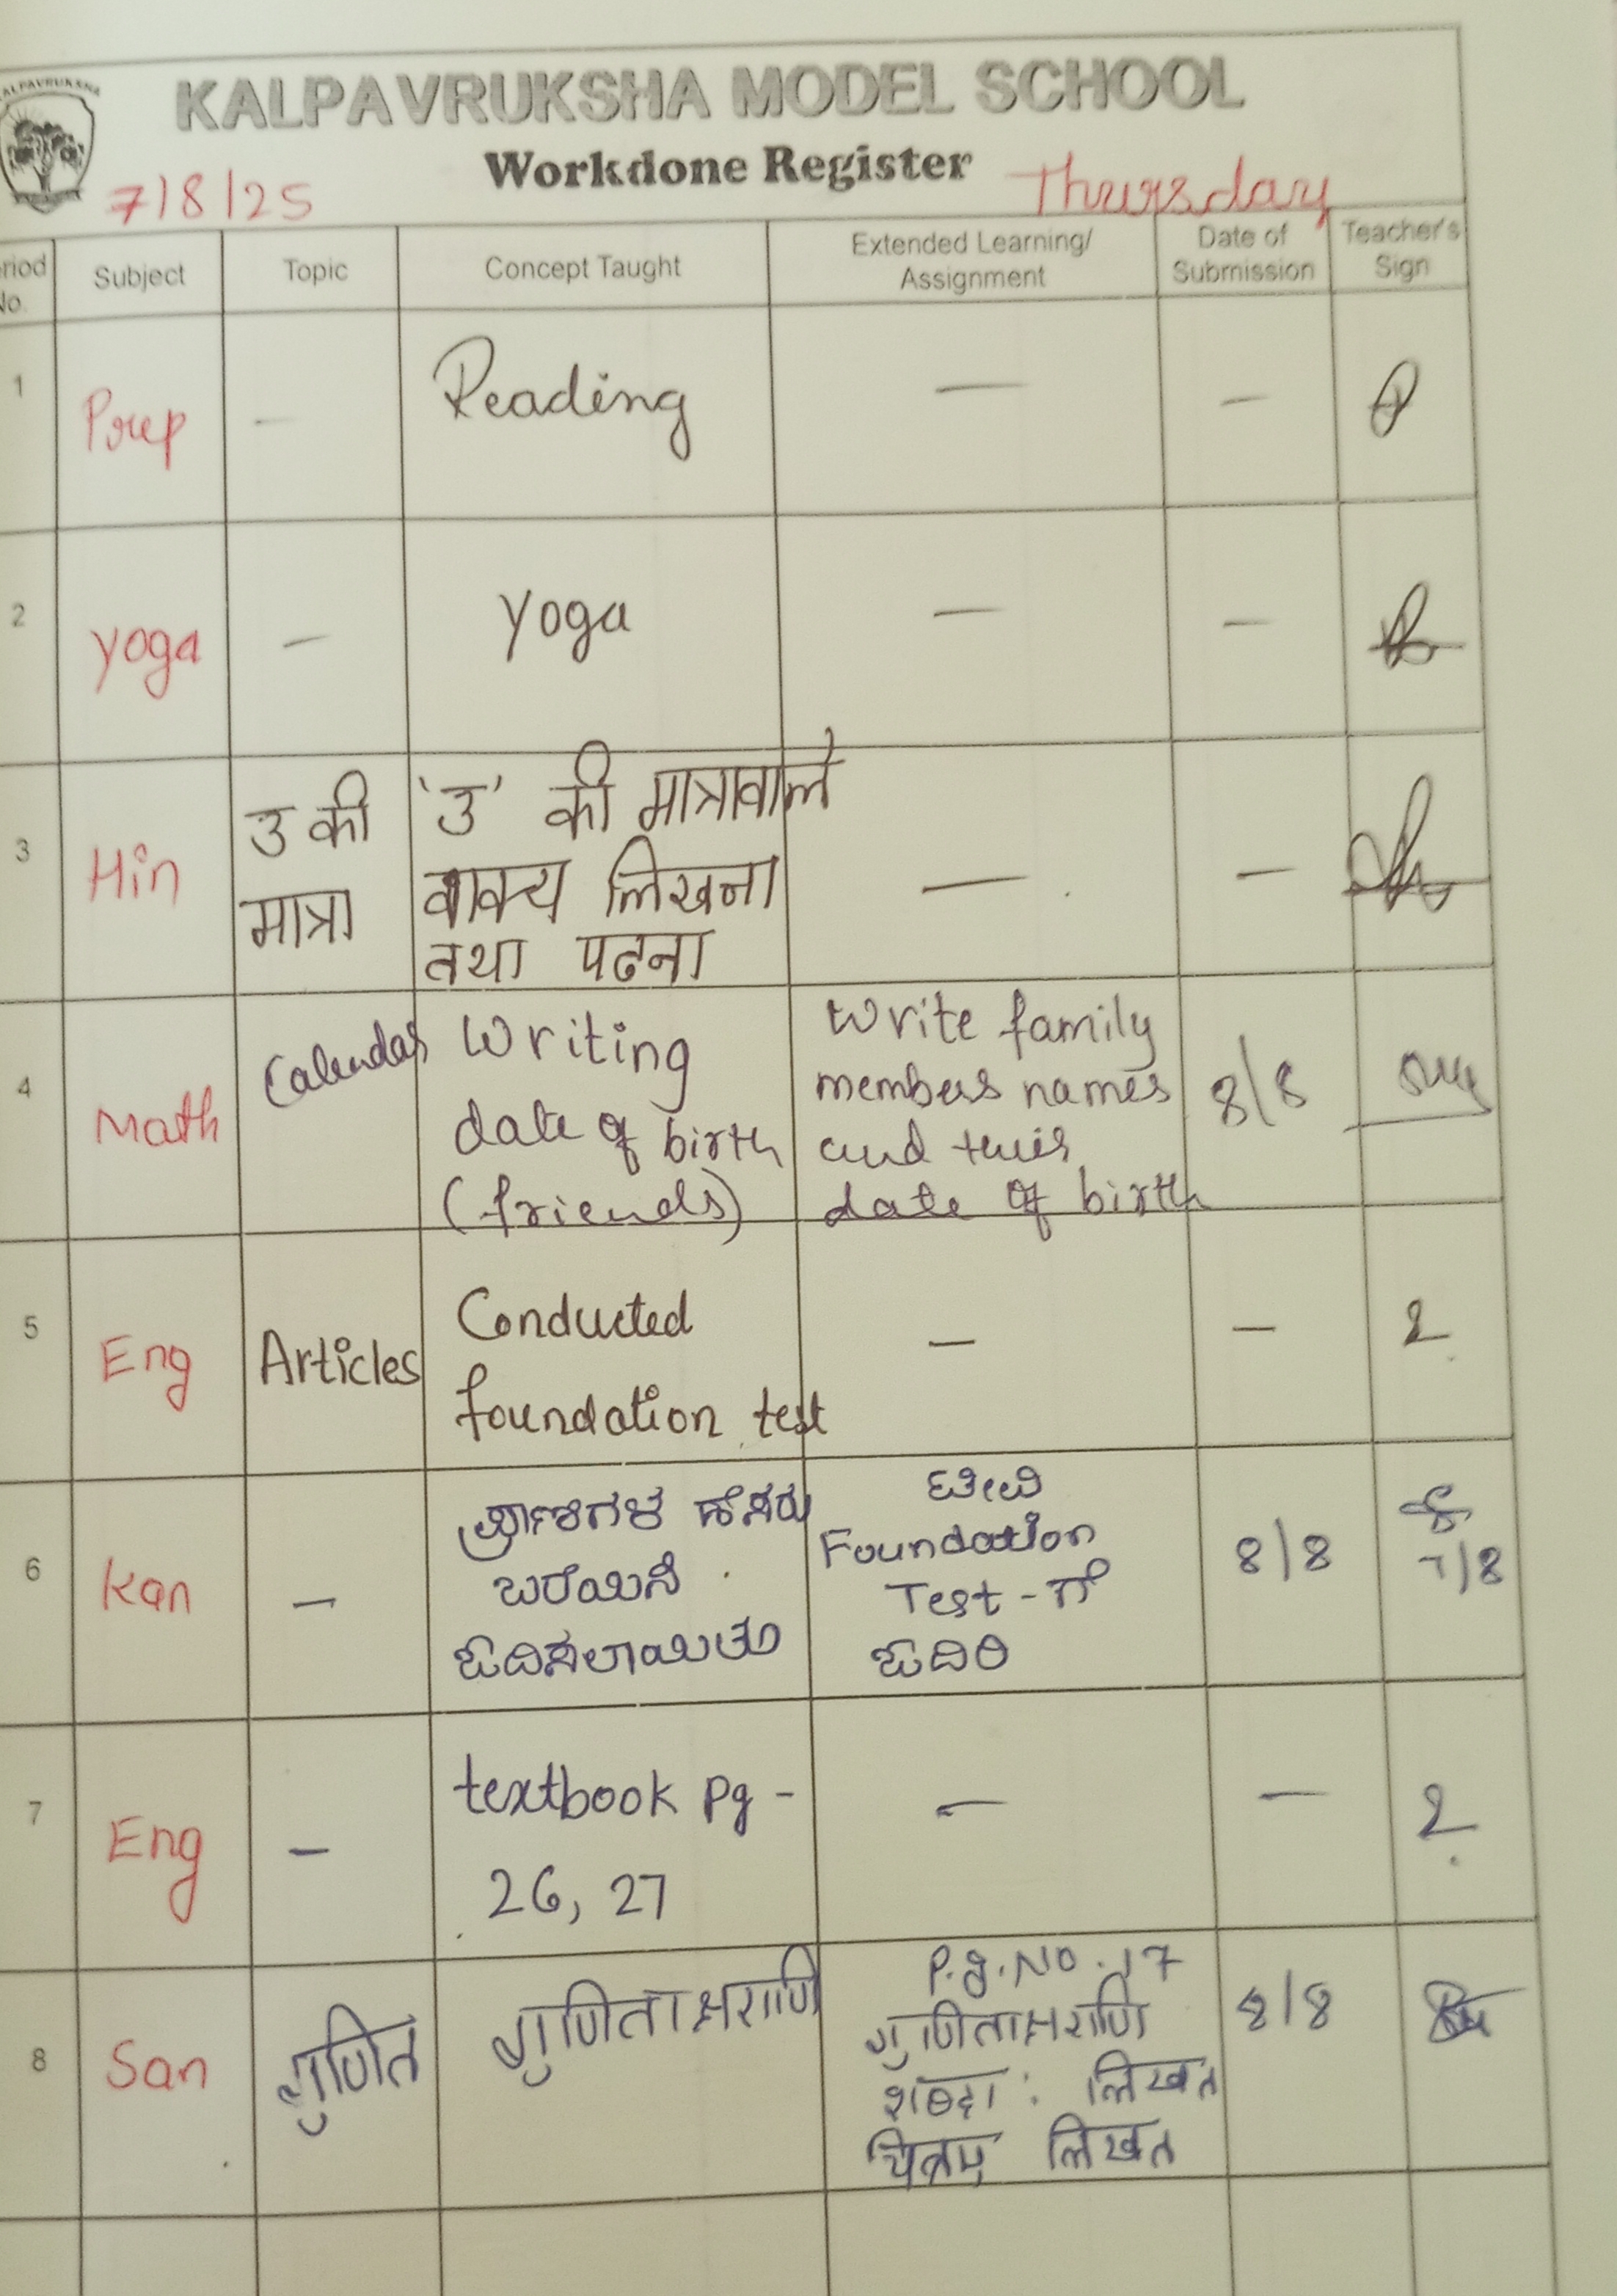 KALPAVRUKSHA
KALPAVRUKSHA MODEL SCHOOL
Workdone Register
7/8/25 Thursday
riod No. Subject Topic Concept Taught Extended Learning/ Assignment Date of Submission Teacher's Sign
1 Prep – Reading — –
2 yoga – yoga — –
3 Hin उ की मात्रा 'उ' की मात्रावाले वाक्य लिखना तथा पढना — –
4 Math Calendar Writing date of birth (friends) Write family members names and their date of birth 8/8
5 Eng Articles Conducted foundation test – –
6 Kan – ಪ್ರಾಣಿಗಳ ಹೆಸರು ಬರೆಯಿಸಿ ಓದಿಸಲಾಯಿತು Foundation Test - ಗೆ ಓದಿರಿ 8/8 7/8
7 Eng – textbook pg - 26, 27 – –
8 San गुणित गुणिताक्षराणि P.g.No.17 गुणिताक्षराणि लिखत लिखत 8/8